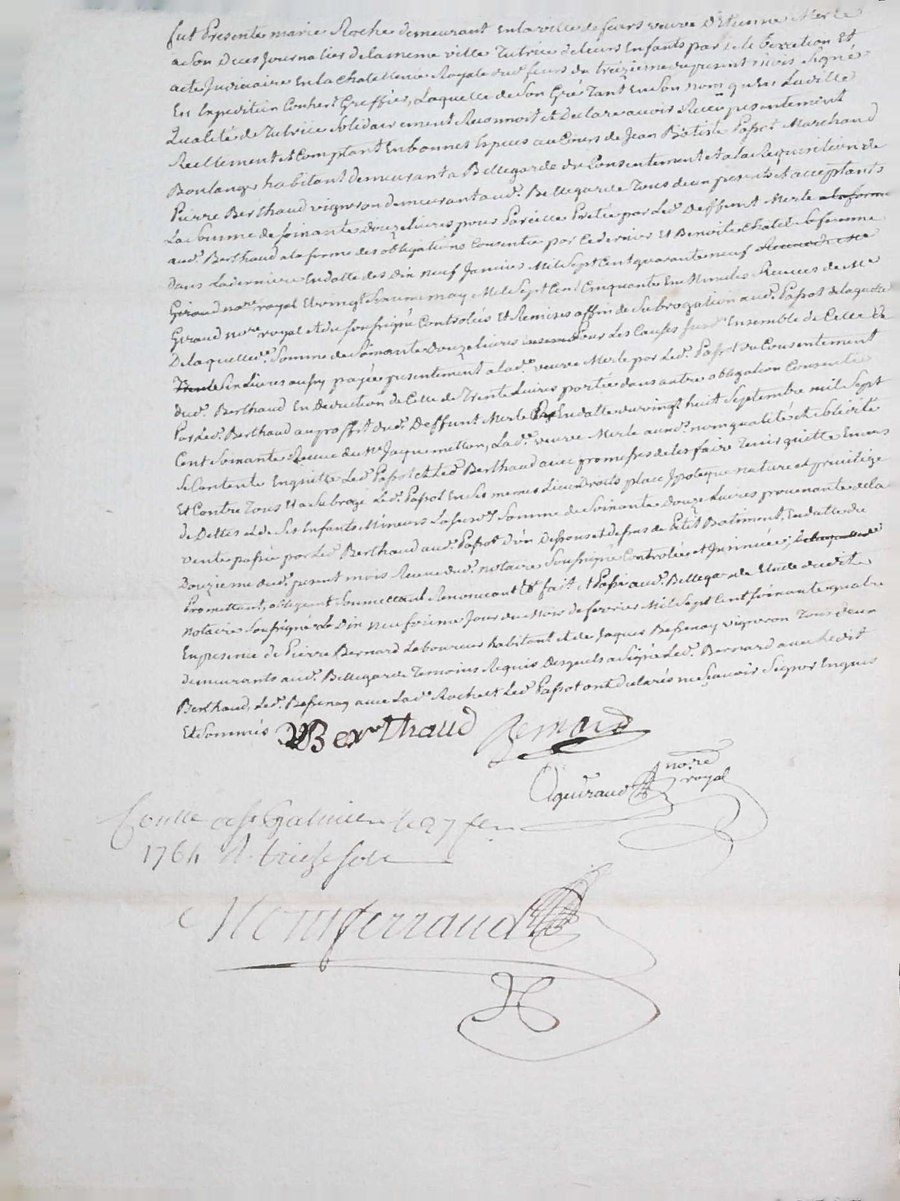 fut Presente marie Roche demeurant En la ville de feurs veuve D'Etienne Merle
a Son Deces Journalier de la meme ville Tutrice de leurs Enfants par
acte Judiciaire En la Chatellenie Royale dud. feurs du treizieme du present mois Signé
En Expedition Greffier, Laquelle de Son Gré Tant En Son nom qu'en Laditte
Qualité de Tutrice Solidairement Reconnoit et declare avoir Recu presentement
Reellement et Comptant En bonnes Especes au Cours de Jean Batiste Passot Marchand
Boulanger habitant demeurant a Bellegarde du Consentement et a la Requisition de
Pierre Berthaud vigneron demeurant aud. Bellegarde Tous deux presents et acceptants
La Somme de Soixante Douze livres pour Pareille Pretée par led. Deffunt Merle a la forme
aud. Berthaud a la forme des obligations Consentie par Ce dernier Et Benoite Chatel Sa femme
dans la derniere En datte des Dix neuf Janvier Mil Sept Cent quarante neuf
Giraud nore. royal Et vingt may Mil Sept Cent Cinquante Recues de Me
Giraud nore. royal et du Soussigné Controlés Et Remises affin de Subrogation aud. Passot de laquelle
De laquelle Somme de Soixante Douze livres pour les Causes Ensemble de Celle de
livres aussy payée presentement a lad. veuve Merle par led. Passot du Consentement
dud. Berthaud En Deduction de Celle de Trente livres portée dans autre obligation Consentie
Par led. Berthaud au proffit dud. Deffunt Merle En datte du vingt huit Septembre mil Sept
Cent Soixante Recue du Me Jaquemetton, Lad. veuve Merle auxd. nom qualité et Solidité
Se Contente En quitte led. Passot et led. Berthaud avec promesse de les faire Tenir quitte Envers
Et Contre Tous Et a Subrogé led. Passot En Ses memes lieu droits place Ipoteque nature et privilege
de Dettes et de Ses Enfants Mineurs La Susd. Somme de Soixante Douze livres provenante de la
vente passée par led. Berthaud aud. Passot d'un Dessous et dessus de Petit Batiment, En datte du
Douzieme dud. present mois Recue dud. notaire Soussigné Controlée et Insinuée
Promettant, obligeant Soumettant Renoncant &a fait et Passé aud. Bellegarde Etude dudit
notaire Soussigné Le Dix neuvieme Jour du Mois de fevrier Mil Sept Cent Soixante quatre
En presence de Pierre Bernard Laboureur habitant et de Jaques Bessenay vigneron Tous deux
demeurants aud. Bellegarde Temoins Requis Desquels a Signé led. Bernard avec Ledit
Berthaud, Led. Bessenay avec Lad. Roche et Led. Passot ont declarés ne Scavoir Signer Enquis
Et Sommés
Berthaud Bernard
Giraud nore. royal
Conlle a St Galmier le 27 fer
1764 R. treize sols
Montferraud